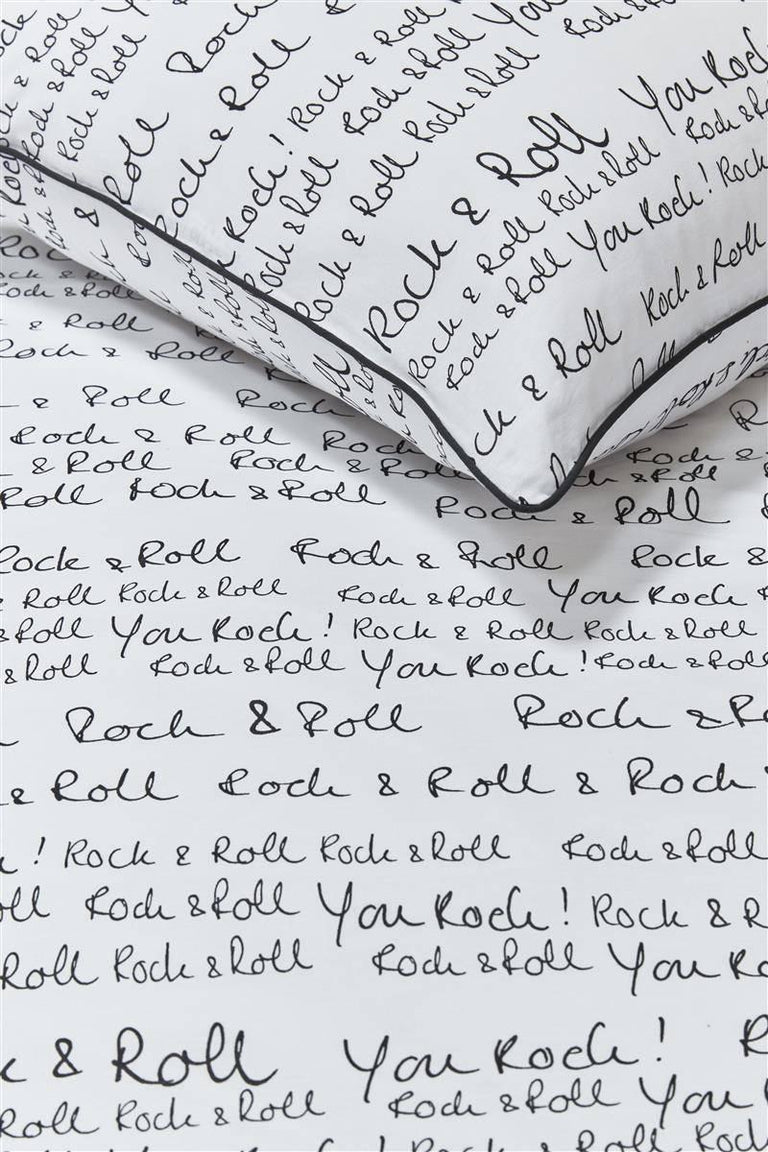 Rock
& Roll Rock & Roll
& Roll Rock & Roll You
Rock & Roll
Rock & Roll Rock & Roll
Rock & Roll
Rock! Rock & Roll Rock & Roll You
Rock & Roll Rock & Roll Rock & Roll
Rock & Roll Rock & Roll
Rock & Roll You Rock
Rock & Roll Rock & Roll Rock & Roll
Rock & Roll You Rock! Rock
& Roll Rock & Roll
& Roll
Rock & Roll
& Roll Rock
Rock & Roll Rock
& Roll Rock & Roll Rock & Roll
Roll Rock & Roll Rock & Roll
Rock & Roll Rock & Roll Rock &
& Roll Rock & Roll Rock & Roll You Rock
& Roll You Rock! Rock & Roll Rock & Roll
& Roll Rock & Roll You Rock! Rock & Roll
Rock & Roll Rock &
& Roll Rock & Roll & Rock
! Rock & Roll Rock & Roll Rock & Roll
Rock & Roll You Rock! Rock &
Roll Rock & Roll Rock & Roll You
& Roll You Rock!
Roll Rock & Roll Rock & Roll You